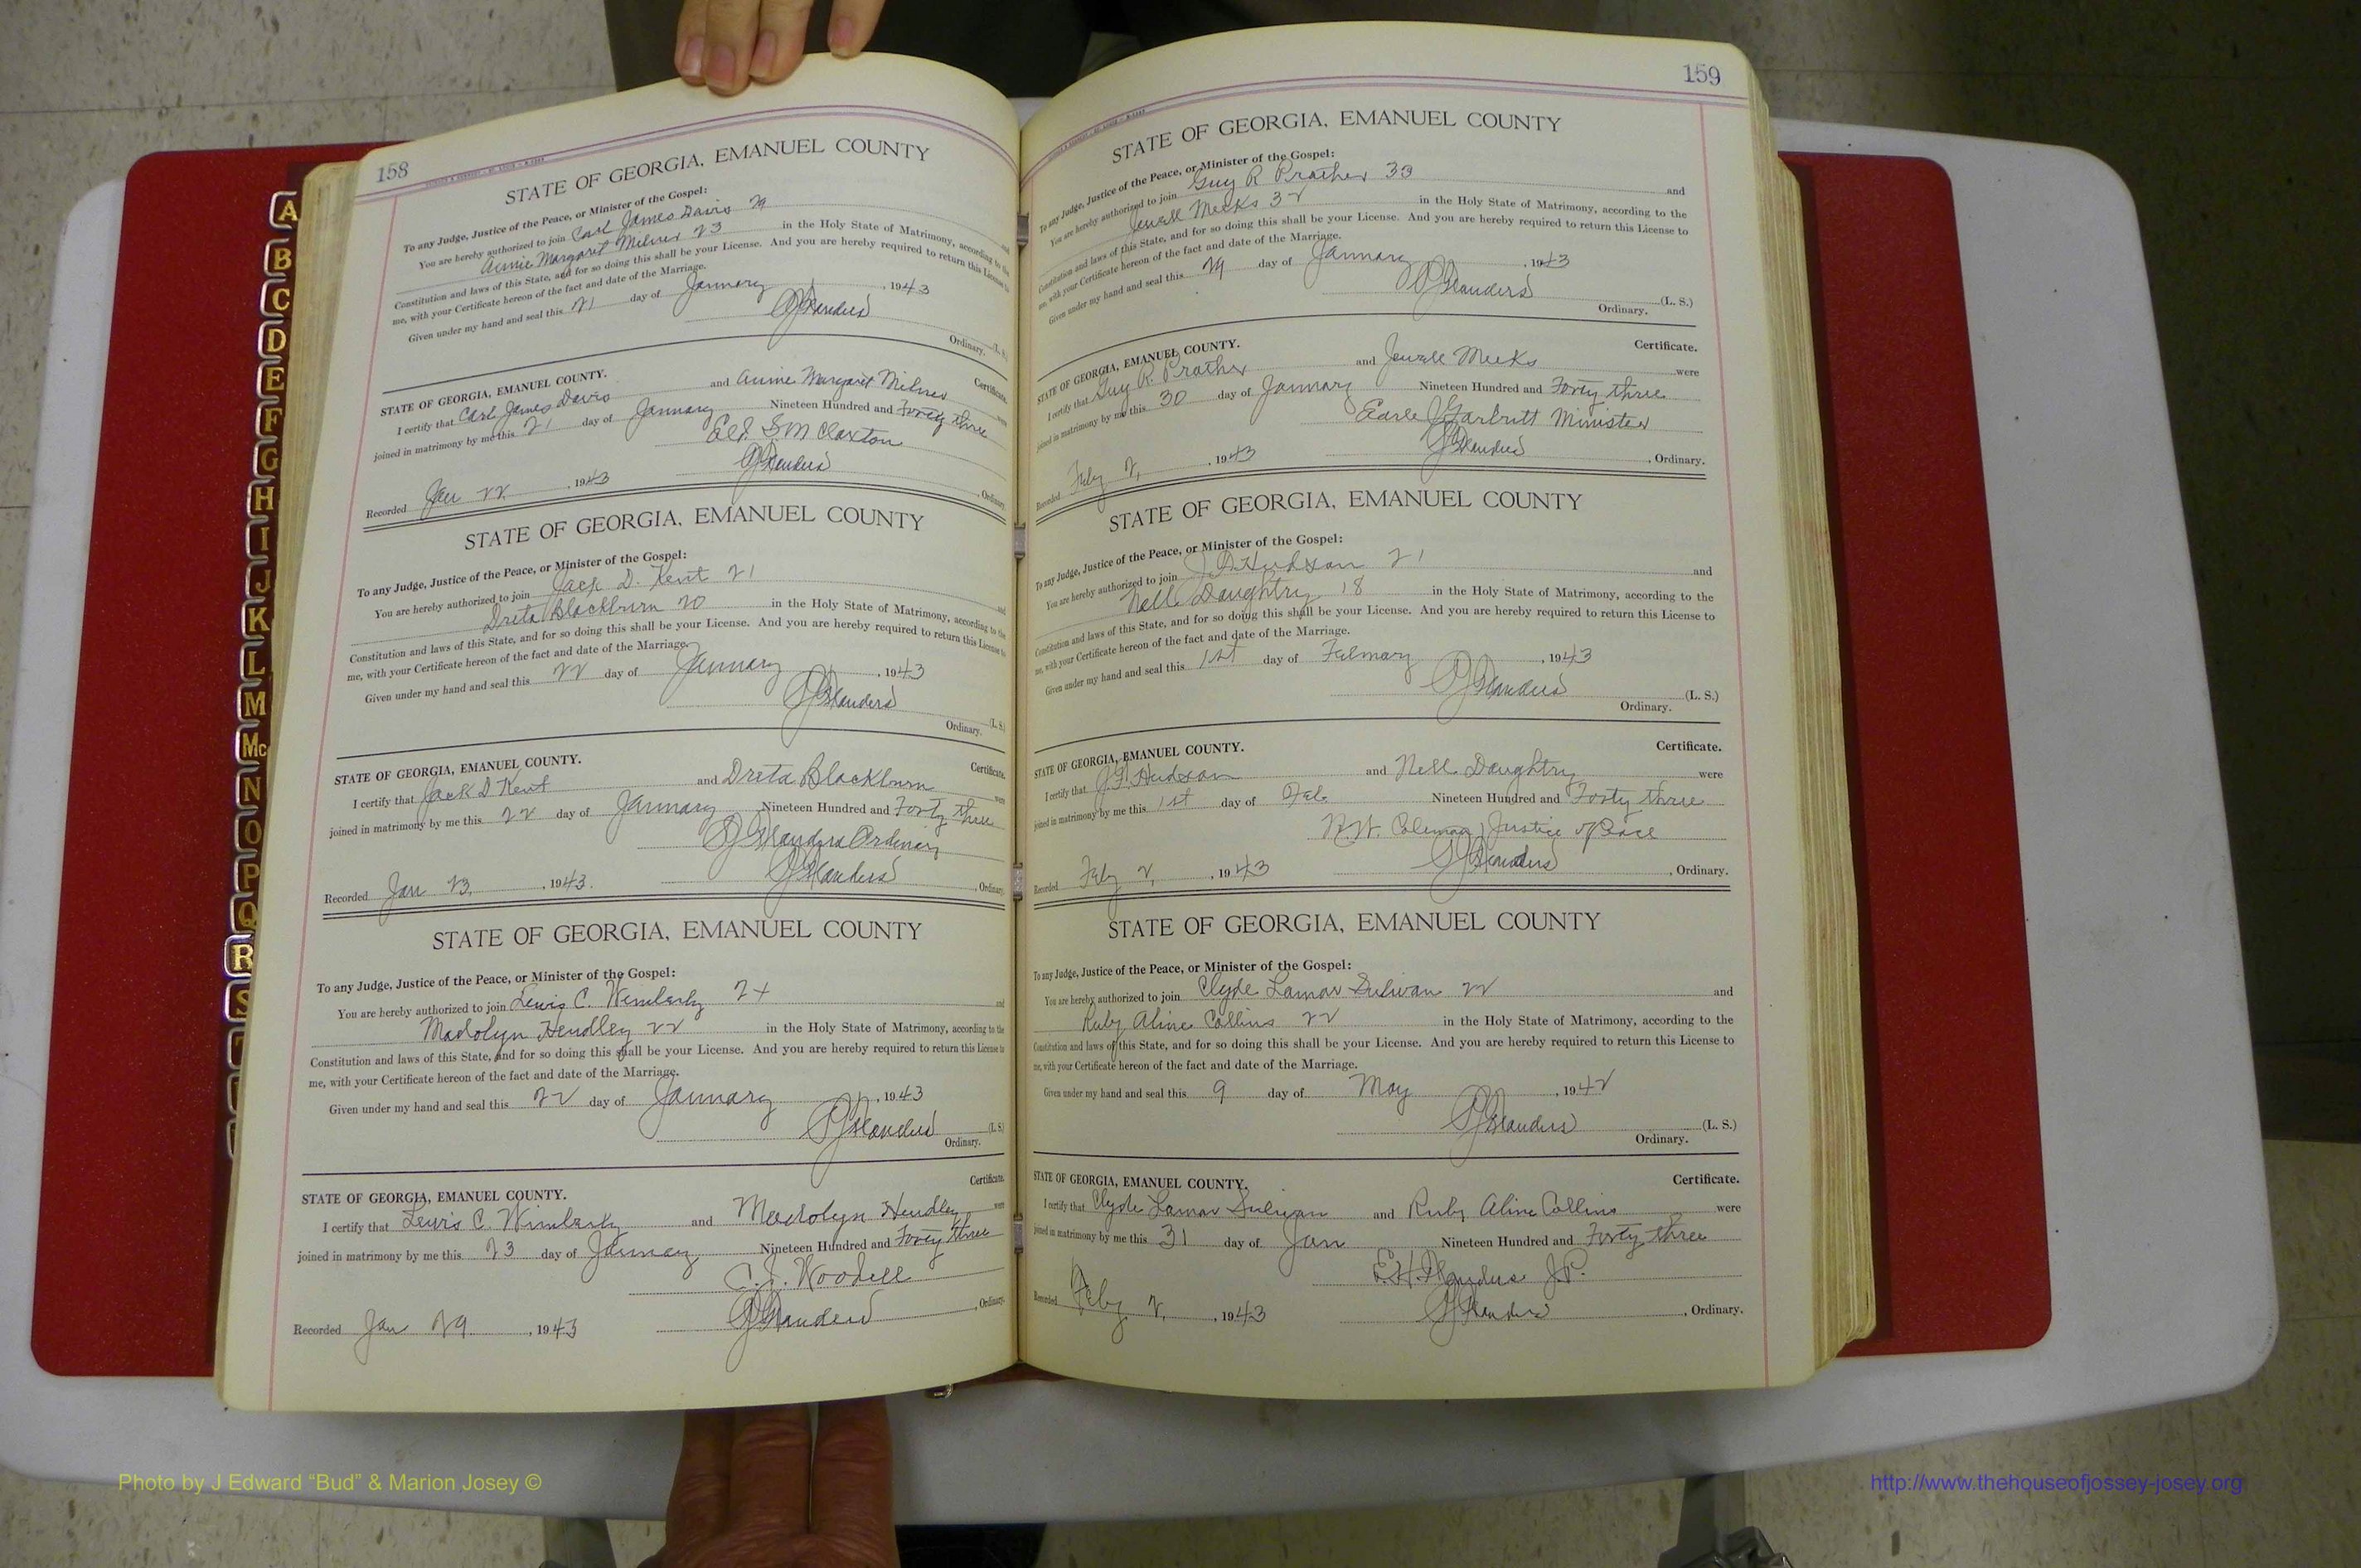 158
STATE OF GEORGIA, EMANUEL COUNTY
To any Judge, Justice of the Peace, or Minister of the Gospel:
You are hereby authorized to join Carl James Davis 29 and
Annie Margaret Milner 23 in the Holy State of Matrimony, according to the
Constitution and laws of this State, and for so doing this shall be your License. And you are hereby required to return this License to
me, with your Certificate hereon of the fact and date of the Marriage.
Given under my hand and seal this 21 day of January, 1943
(L. S.)
Ordinary.
STATE OF GEORGIA, EMANUEL COUNTY. Certificate.
I certify that Carl James Davis and Annie Margaret Milner were
joined in matrimony by me this 21 day of January Nineteen Hundred and Forty three
Eld. S M Claxton
Recorded Jan 22, 1943, Ordinary.
STATE OF GEORGIA, EMANUEL COUNTY
To any Judge, Justice of the Peace, or Minister of the Gospel:
You are hereby authorized to join Jack D. Kent 21 and
Dreta Blackburn 20 in the Holy State of Matrimony, according to the
Constitution and laws of this State, and for so doing this shall be your License. And you are hereby required to return this License to
me, with your Certificate hereon of the fact and date of the Marriage.
Given under my hand and seal this 22 day of January, 1943
(L. S.)
Ordinary.
STATE OF GEORGIA, EMANUEL COUNTY. Certificate.
I certify that Jack D Kent and Dreta Blackburn were
joined in matrimony by me this 22 day of January Nineteen Hundred and Forty three
Ordinary
Recorded Jan 23, 1943. , Ordinary.
STATE OF GEORGIA, EMANUEL COUNTY
To any Judge, Justice of the Peace, or Minister of the Gospel:
You are hereby authorized to join Lewis C. Wimberly 24 and
Madolyn Hendley 22 in the Holy State of Matrimony, according to the
Constitution and laws of this State, and for so doing this shall be your License. And you are hereby required to return this License to
me, with your Certificate hereon of the fact and date of the Marriage.
Given under my hand and seal this 22 day of January, 1943
(L. S.)
Ordinary.
Certificate.
STATE OF GEORGIA, EMANUEL COUNTY.
I certify that Lewis C. Wimberly and Madolyn Hendley were
joined in matrimony by me this 23 day of January Nineteen Hundred and Forty three
C. J. Woodell
Recorded Jan 29, 1943, Ordinary.
159
STATE OF GEORGIA, EMANUEL COUNTY
To any Judge, Justice of the Peace, or Minister of the Gospel:
You are hereby authorized to join Guy R Prather 33 and
Jewell Meeks 32 in the Holy State of Matrimony, according to the
Constitution and laws of this State, and for so doing this shall be your License. And you are hereby required to return this License to
me, with your Certificate hereon of the fact and date of the Marriage.
Given under my hand and seal this 29 day of January, 1943
(L. S.)
Ordinary.
STATE OF GEORGIA, EMANUEL COUNTY. Certificate.
I certify that Guy R. Prather and Jewell Meeks were
joined in matrimony by me this 30 day of January Nineteen Hundred and Forty three
Earle Garbutt Minister
Recorded Feby 2, 1943, Ordinary.
STATE OF GEORGIA, EMANUEL COUNTY
To any Judge, Justice of the Peace, or Minister of the Gospel:
You are hereby authorized to join Hudson 21 and
Nell Daughtry 18 in the Holy State of Matrimony, according to the
Constitution and laws of this State, and for so doing this shall be your License. And you are hereby required to return this License to
me, with your Certificate hereon of the fact and date of the Marriage.
Given under my hand and seal this 1st day of February, 1943
(L. S.)
Ordinary.
STATE OF GEORGIA, EMANUEL COUNTY. Certificate.
I certify that Hudson and Nell Daughtry were
joined in matrimony by me this 1st day of Feb Nineteen Hundred and Forty three
Coleman, Justice of Peace
Recorded Feby 2, 1943, Ordinary.
STATE OF GEORGIA, EMANUEL COUNTY
To any Judge, Justice of the Peace, or Minister of the Gospel:
You are hereby authorized to join Clyde Lamar Sulivan 22 and
Ruby Aline Collins 22 in the Holy State of Matrimony, according to the
Constitution and laws of this State, and for so doing this shall be your License. And you are hereby required to return this License to
me, with your Certificate hereon of the fact and date of the Marriage.
Given under my hand and seal this 9 day of May, 1942
(L. S.)
Ordinary.
STATE OF GEORGIA, EMANUEL COUNTY. Certificate.
I certify that Clyde Lamar Sulivan and Ruby Aline Collins were
joined in matrimony by me this 31 day of Jan Nineteen Hundred and Forty three
E. H. Flanders J.P.
Recorded Feby 2, 1943, Ordinary.
A
B
C
D
E
F
G
H
I
J
K
L
M
Mc
N
O
P
Q
R
S
Photo by J Edward “Bud” & Marion Josey ©
http://www.thehouseofjossey-josey.org